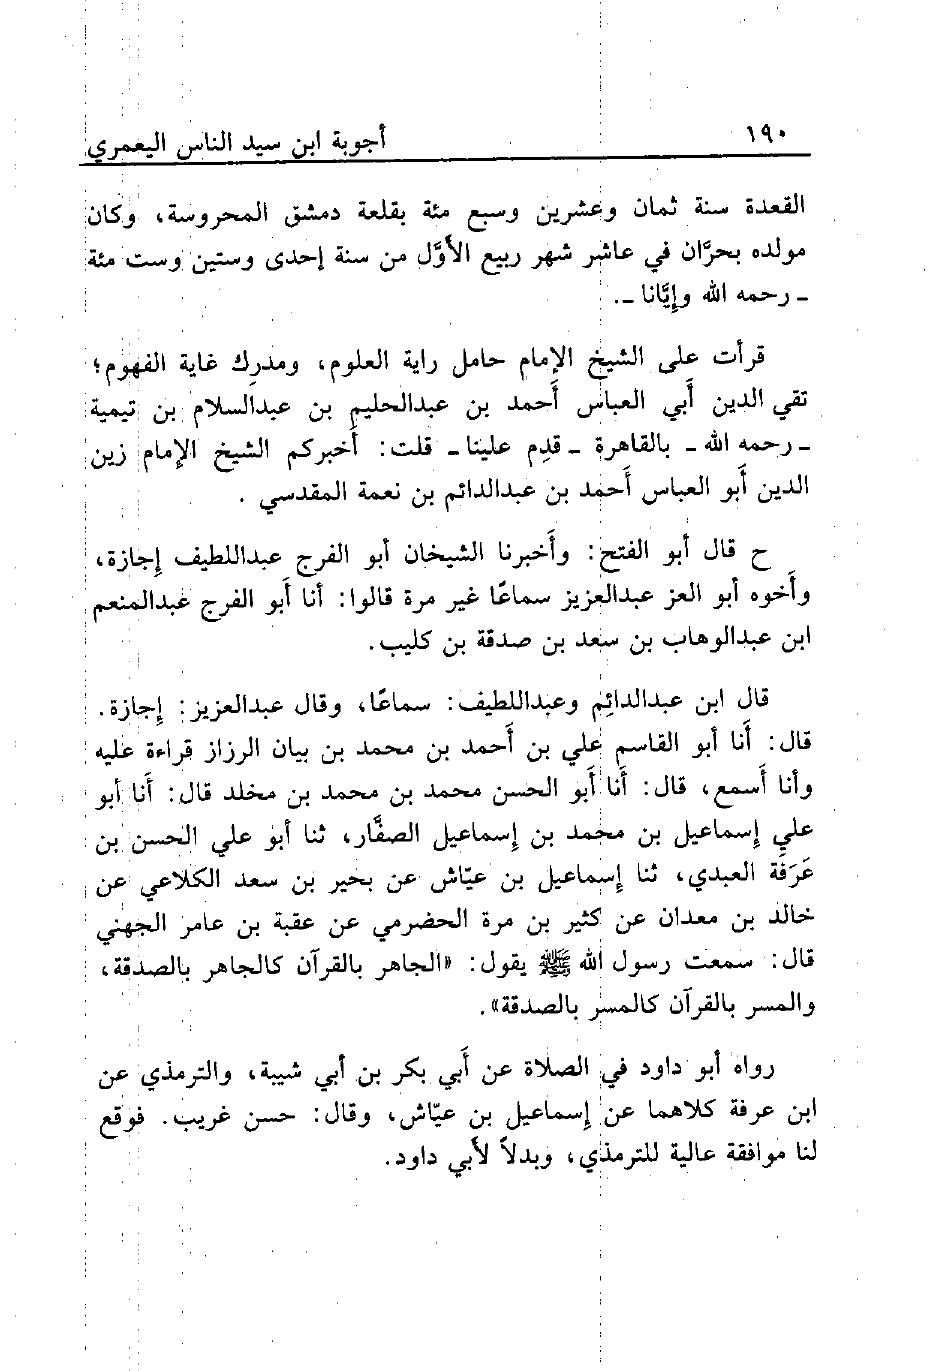 ١٩٠
أجوبة ابن سيد الناس اليعمري
القعدة سنة ثمان وعشرين وسبع مئة بقلعة دمشق المحروسة، وكان
مولده بحرَّان في عاشر شهر ربيع الأوَّل من سنة إحدى وستين وست مئة
ـ رحمه الله وإيَّانا ـ.
قرأت على الشيخ الإمام حامل راية العلوم، ومدرِك غاية الفهوم؛
تقي الدين أبي العباس أحمد بن عبدالحليم بن عبدالسلام بن تيمية
ـ رحمه الله ـ بالقاهرة ـ قدِم علينا ـ قلت: أخبركم الشيخ الإمام زين
الدين أبو العباس أحمد بن عبدالدائم بن نعمة المقدسي .
ح قال أبو الفتح: وأخبرنا الشيخان أبو الفرج عبداللطيف إجازة،
وأخوه أبو العز عبدالعزيز سماعًا غير مرة قالوا: أنا أبو الفرج عبدالمنعم
ابن عبدالوهاب بن سعد بن صدقة بن كليب.
قال ابن عبدالدائِم وعبداللطيف: سماعًا، وقال عبدالعزيز: إجازة.
قال: أنا أبو القاسم علي بن أحمد بن محمد بن بيان الرزاز قراءة عليه
وأنا أسمع، قال: أنا أبو الحسن محمد بن محمد بن مخلد قال: أنا أبو
علي إسماعيل بن محمد بن إسماعيل الصفَّار، ثنا أبو علي الحسن بن
عَرَفَة العبدي، ثنا إسماعيل بن عيّاش عن بحير بن سعد الكلاعي عن
خالد بن معدان عن كثير بن مرة الحضرمي عن عقبة بن عامر الجهني
قال: سمعت رسول الله ﷺ يقول: «الجاهر بالقرآن كالجاهر بالصدقة،
والمسر بالقرآن كالمسر بالصدقة».
رواه أبو داود في الصلاة عن أبي بكر بن أبي شيبة، والترمذي عن
ابن عرفة كلاهما عن إسماعيل بن عيّاش، وقال: حسن غريب. فوقع
لنا موافقة عالية للترمذي، وبدلاً لأبي داود.